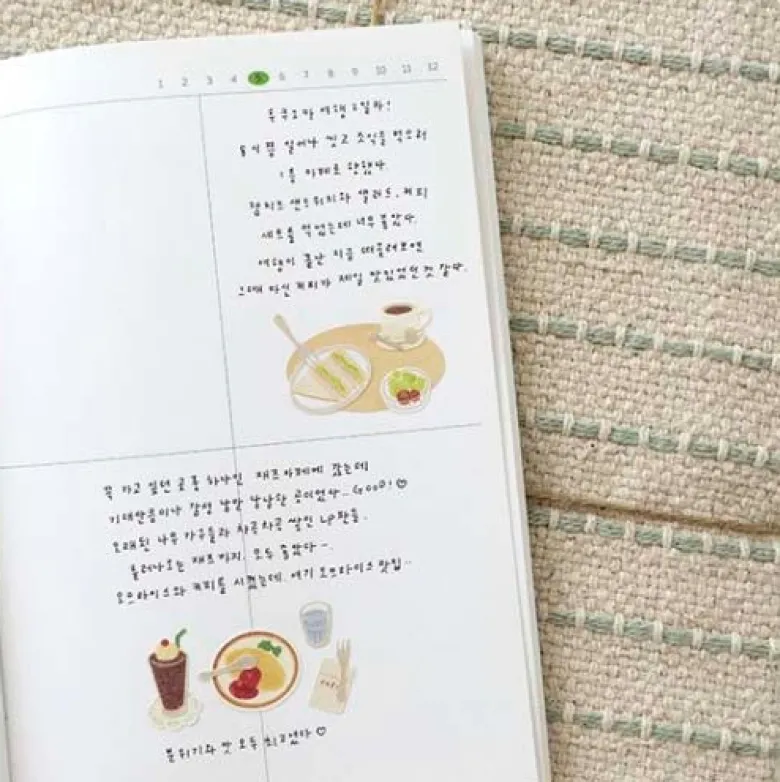 1 2 3 4 5 6 7 8 9 10 11 12
후쿠오카 여행 2일차!
8시쯤 일어나 씻고 조식을 먹으러
1층 카페로 향했다.
햄치즈 샌드위치와 샐러드, 커피
세트를 먹었는데 너무 좋았다.
여행이 끝난 지금 떠올려보면
그때 마신 커피가 제일 맛있었던 것 같다.
꼭 가고 싶던 곳 중 하나인 재즈카페에 갔는데
기대만큼이나 감성 낭만 낭낭한 곳이었다.. GOOD! ♡
오래된 나무 가구들과 차곡차곡 쌓인 LP판들,
흘러나오는 재즈까지. 모두 좋았다-.
오므라이스와 커피를 시켰는데, 여기 오므라이스 맛집..
분위기와 맛 모두 최고였다 ♡